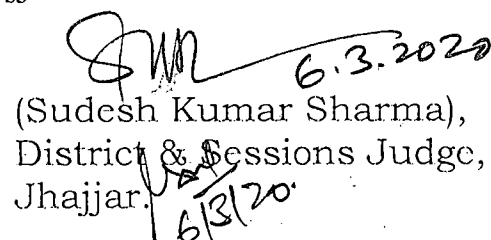 6.3.2020
(Sudesh Kumar Sharma),
District & Sessions Judge,
Jhajjar.
6/3/20